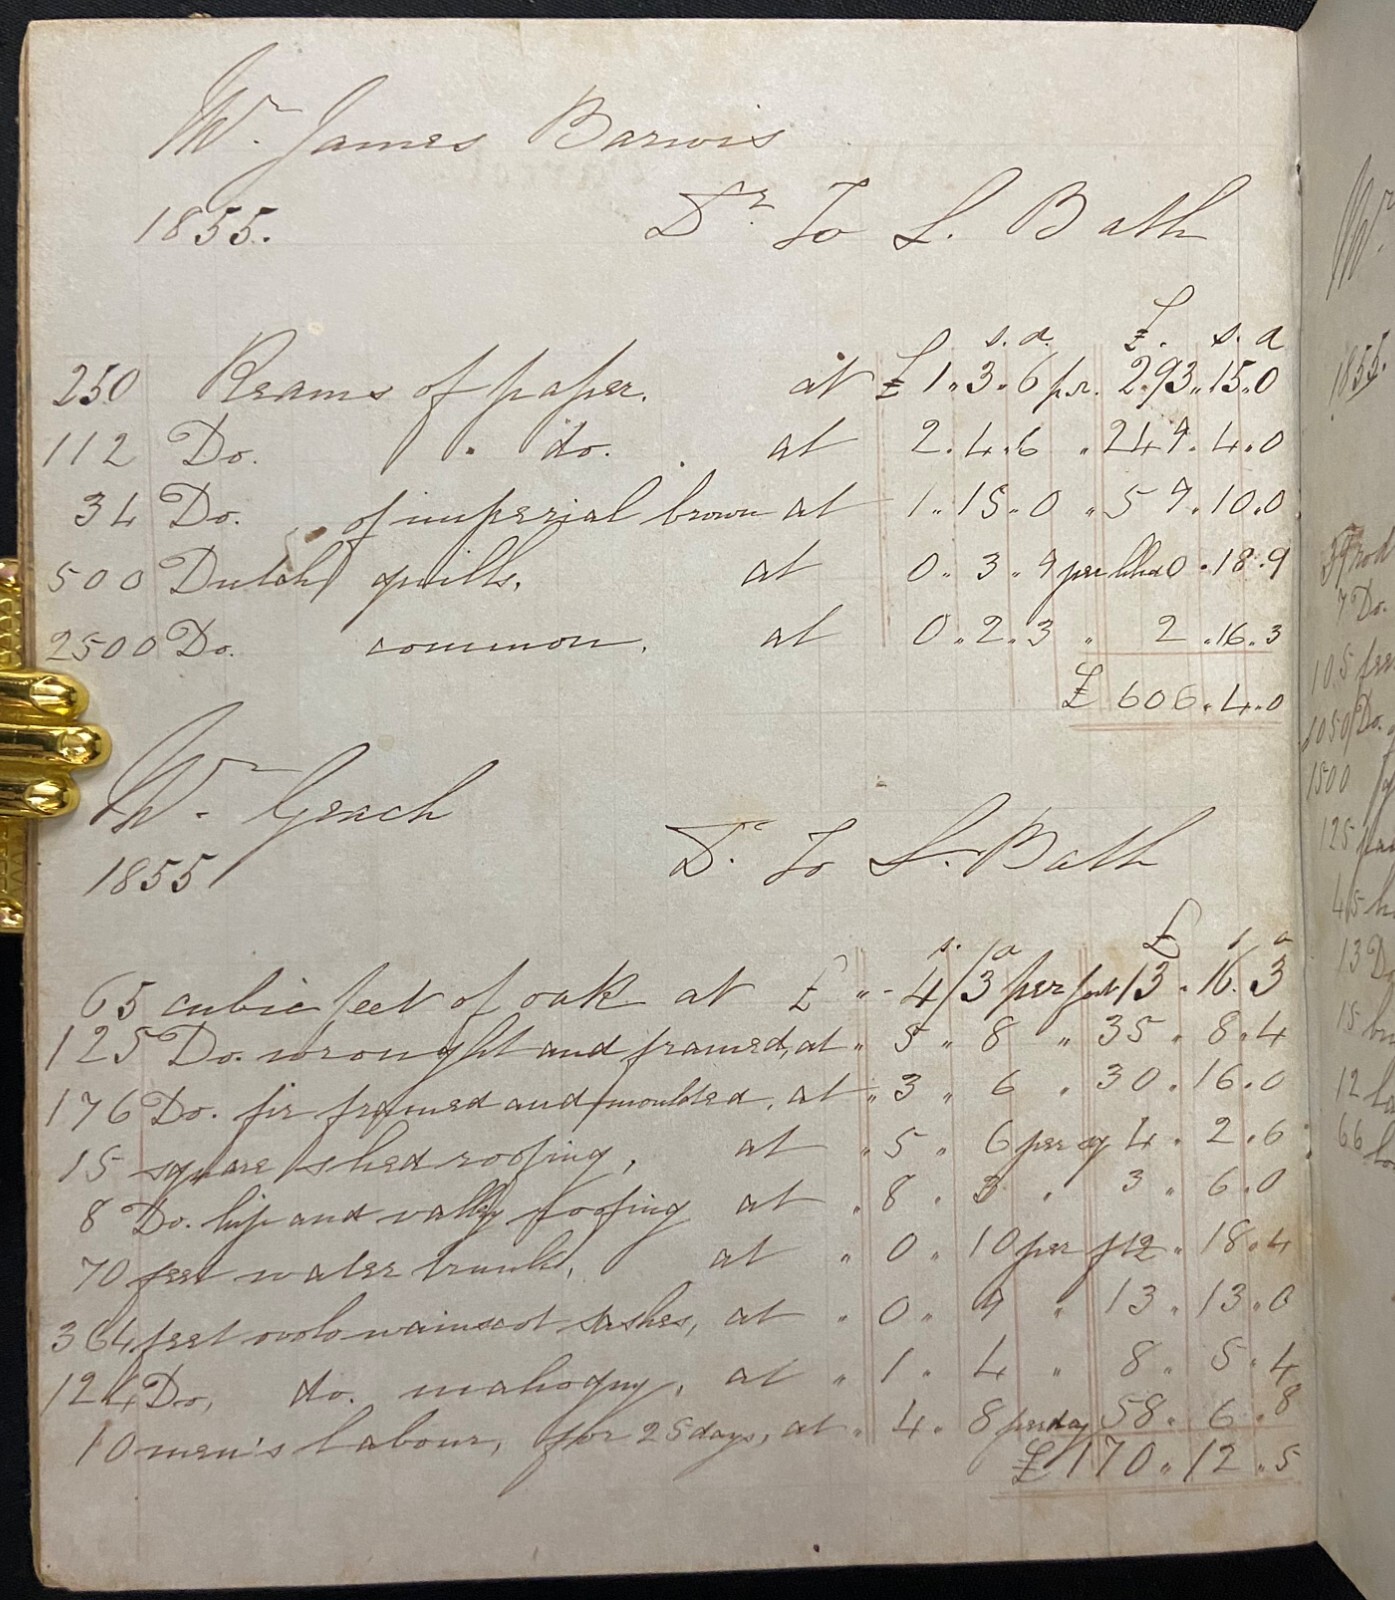 Mr. James Barwis
1855. Dr. To S. Bath
£ s. d. £. s. d
250 Reams of paper. at £ 1.. 3. 6 p.r. 293..15.0
112 Do. . do. . at 2. 4. 6 " 249. 4. 0
34 Do. of imperial brown at 1.. 15. 0 " 59. 10. 0
500 Dutch quills, at 0. 3. 9 per hhd 0. 18. 9
2500 Do. common. at 0. 2. 3 " 2. 16. 3
£ 606. 4. 0
Mr. Geach
1855 Dr. To S. Bath
s. d £ s d
65 cubic feet of oak at £ " - 4/3 per foot 13. 16. 3
125 Do. wrought and framed, at " 5 " 8 " 35 " 8. 4
176 Do. fir framed and moulded, at " 3 " 6 " 30. 16. 0
15 square shed roofing, at " 5 " 6 per sq 4. 2. 6
8 Do. hip and vally roofing at " 8 " 3 " 3 " 6. 0
70 feet water trunk, at " 0 " 10 per ft 2 " 18. 4
364 feet ovolo wainscot sashes, at " 0 " 9 " 13. 13. 0
124 Do, do. mahogny, at " 1. 4 " 8. 5. 4
10 men's labour, for 25 days, at " 4. 8 per day 58. 6. 8
£170 " 12. 5
Mr
1855.
rod
7 Do.
105
1050 Do.
1500
125
45 h
13 D
15
12
66